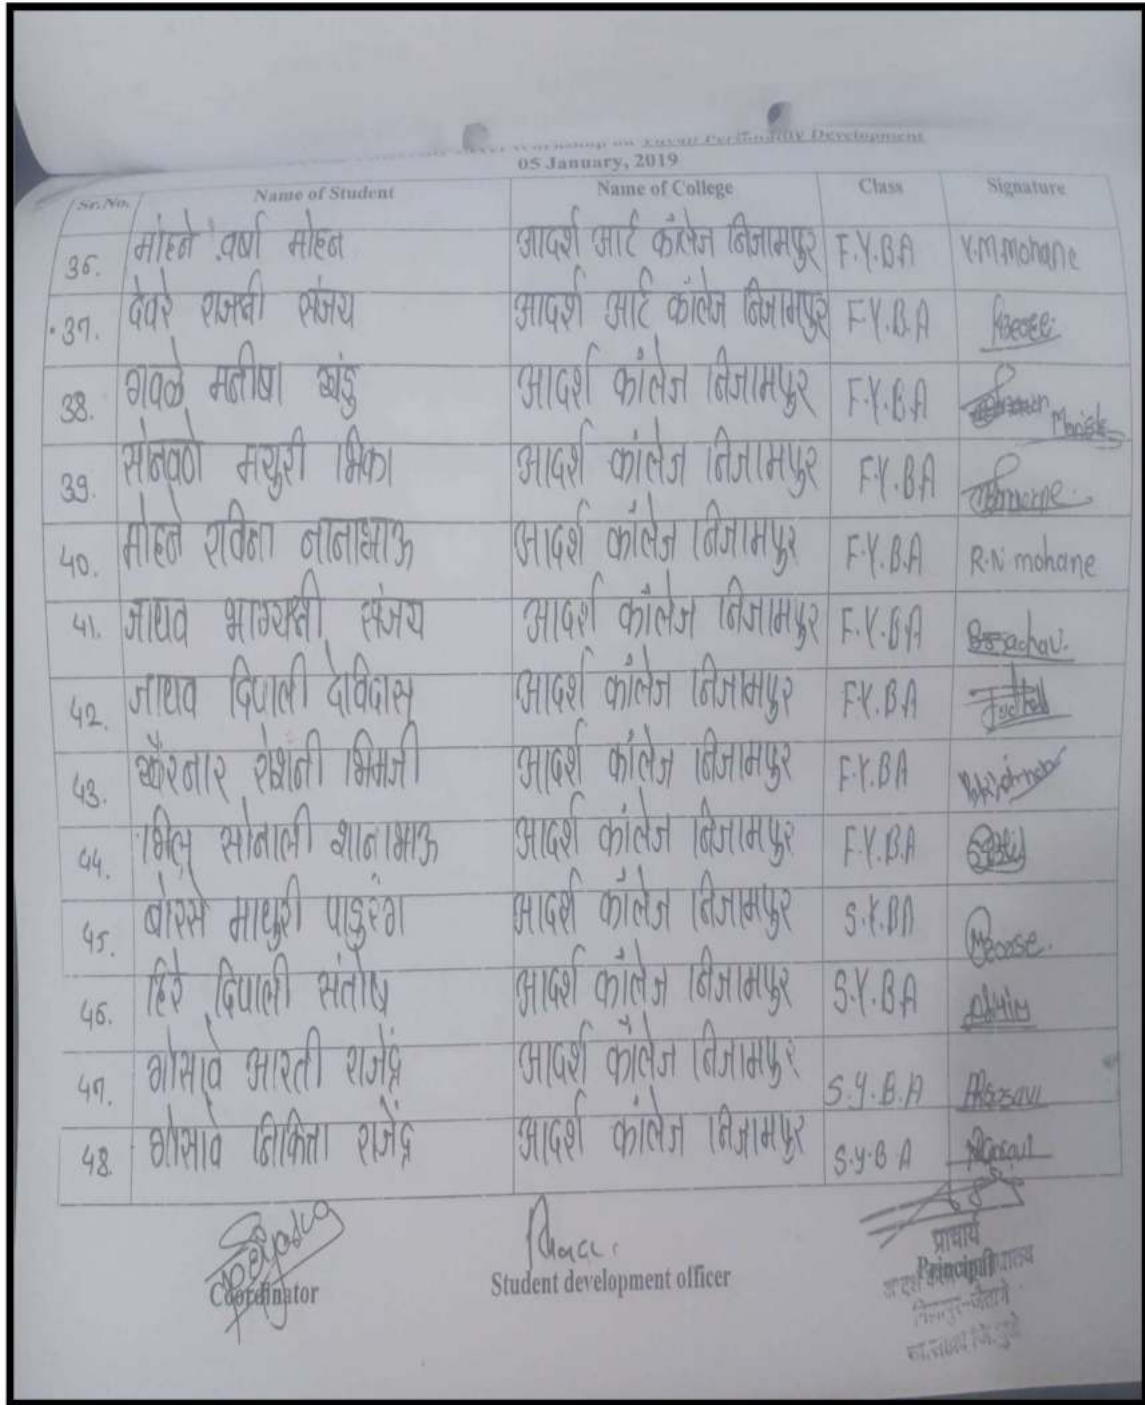 Workshop on Yuvati Personality Development
05 January, 2019
Sr.No. Name of Student Name of College Class Signature
36. मोहने वर्षा मोहन आदर्श आर्ट कॉलेज निजामपुर F.Y.B.A V.M.Mohane
37. देवरे राजश्री संजय आदर्श आर्ट कॉलेज निजामपुर F.Y.B.A
38. गवळे मनीषा खंडु आदर्श कॉलेज निजामपुर F.Y.B.A
39. सोनवणे मयुरी भिका आदर्श कॉलेज निजामपुर F.Y.BA
40. मोहने रविना नानाभाऊ आदर्श कॉलेज निजामपुर F.Y.B.A R.N mohane
41. जाधव भाग्यश्री संजय आदर्श कॉलेज निजामपुर F.Y.B.A
42. जाधव दिपाली देविदास आदर्श कॉलेज निजामपुर F.Y.B.A
43. खैरनार रोशनी भिमजी आदर्श कॉलेज निजामपुर F.Y.BA
44. भिल सोनाली शानाभाऊ आदर्श कॉलेज निजामपुर F.Y.B.A
45. बोरसे माधुरी पाडुरंग आदर्श कॉलेज निजामपुर S.Y.BA
46. हिरे दिपाली संतोष आदर्श कॉलेज निजामपुर S.Y.B.A
47. गोसावे आरती राजेंद्र आदर्श कॉलेज निजामपुर S.Y.B.A
48. गोसावे निकिता राजेंद्र आदर्श कॉलेज निजामपुर S.Y.B A
Coordinator Student development officer प्राचार्य
Principal